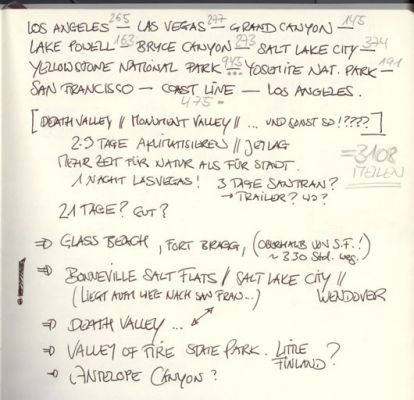 LOS ANGELES 265 — LAS VEGAS 277 — GRAND CANYON — 145
LAKE POWELL 163 BRYCE CANYON 273 SALT LAKE CITY — 324
YELLOWSTONE NATIONAL PARK 945 YOSEMITE NAT. PARK — 191
SAN FRANCISCO — COAST LINE — LOS ANGELES.
475
[DEATH VALLEY // MONUMENT VALLEY // ... UND SONST SO!????]
2-3 TAGE AKLIMATISIEREN // JETLAG
MEHR ZEIT FÜR NATUR ALS FÜR STADT.
= 3108 MEILEN
1 NACHT LAS VEGAS! 3 TAGE SAN FRAN?
→ TRAILER? WO?
21 TAGE? GUT?
⇒ GLASS BEACH, FORT BRAGG, (OBERHALB VON S.F.!)
~ 3:30 Std. weg.
! ⇒ BONNEVILLE SALT FLATS / SALT LAKE CITY //
(LIEGT AUFM WEG NACH SAN FRAN...) WENDOVER
⇒ DEATH VALLEY ...
⇒ VALLEY OF FIRE STATE PARK. LITTLE FINLAND?
⇒ ANTELOPE CANYON?